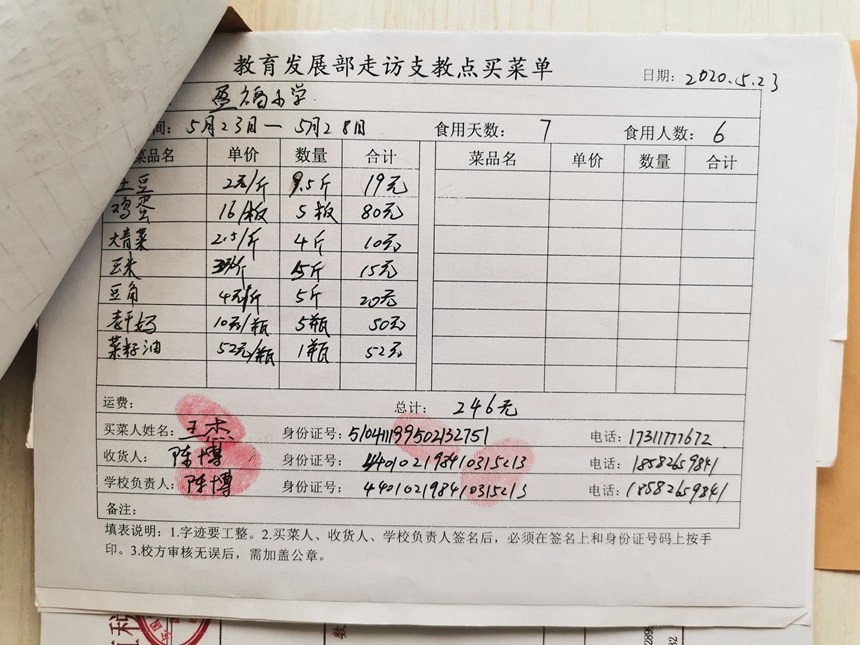 教育发展部走访支教点买菜单
日期: 2020.5.23
垔福小学
间: 5月23日—5月28日 食用天数: 7 食用人数: 6
菜品名 单价 数量 合计 菜品名 单价 数量 合计
土豆 2元/斤 9.5斤 19元
鸡蛋 16/板 5板 80元
大青菜 2.5/斤 4斤 10元
玉米 3元/斤 5斤 15元
豆角 4元/斤 5斤 20元
老干妈 10元/瓶 5瓶 50元
菜籽油 52元/瓶 1瓶 52元
运费: 总计: 246元
买菜人姓名: 王杰 身份证号: 510411199502132751 电话: 17311777672
收货人: 陈博 身份证号: 440102198410315213 电话: 18582659841
学校负责人: 陈博 身份证号: 440102198410315213 电话: 18582659841
备注:
填表说明: 1.字迹要工整。2.买菜人、收货人、学校负责人签名后，必须在签名上和身份证号码上按手
印。3.校方审核无误后，需加盖公章。